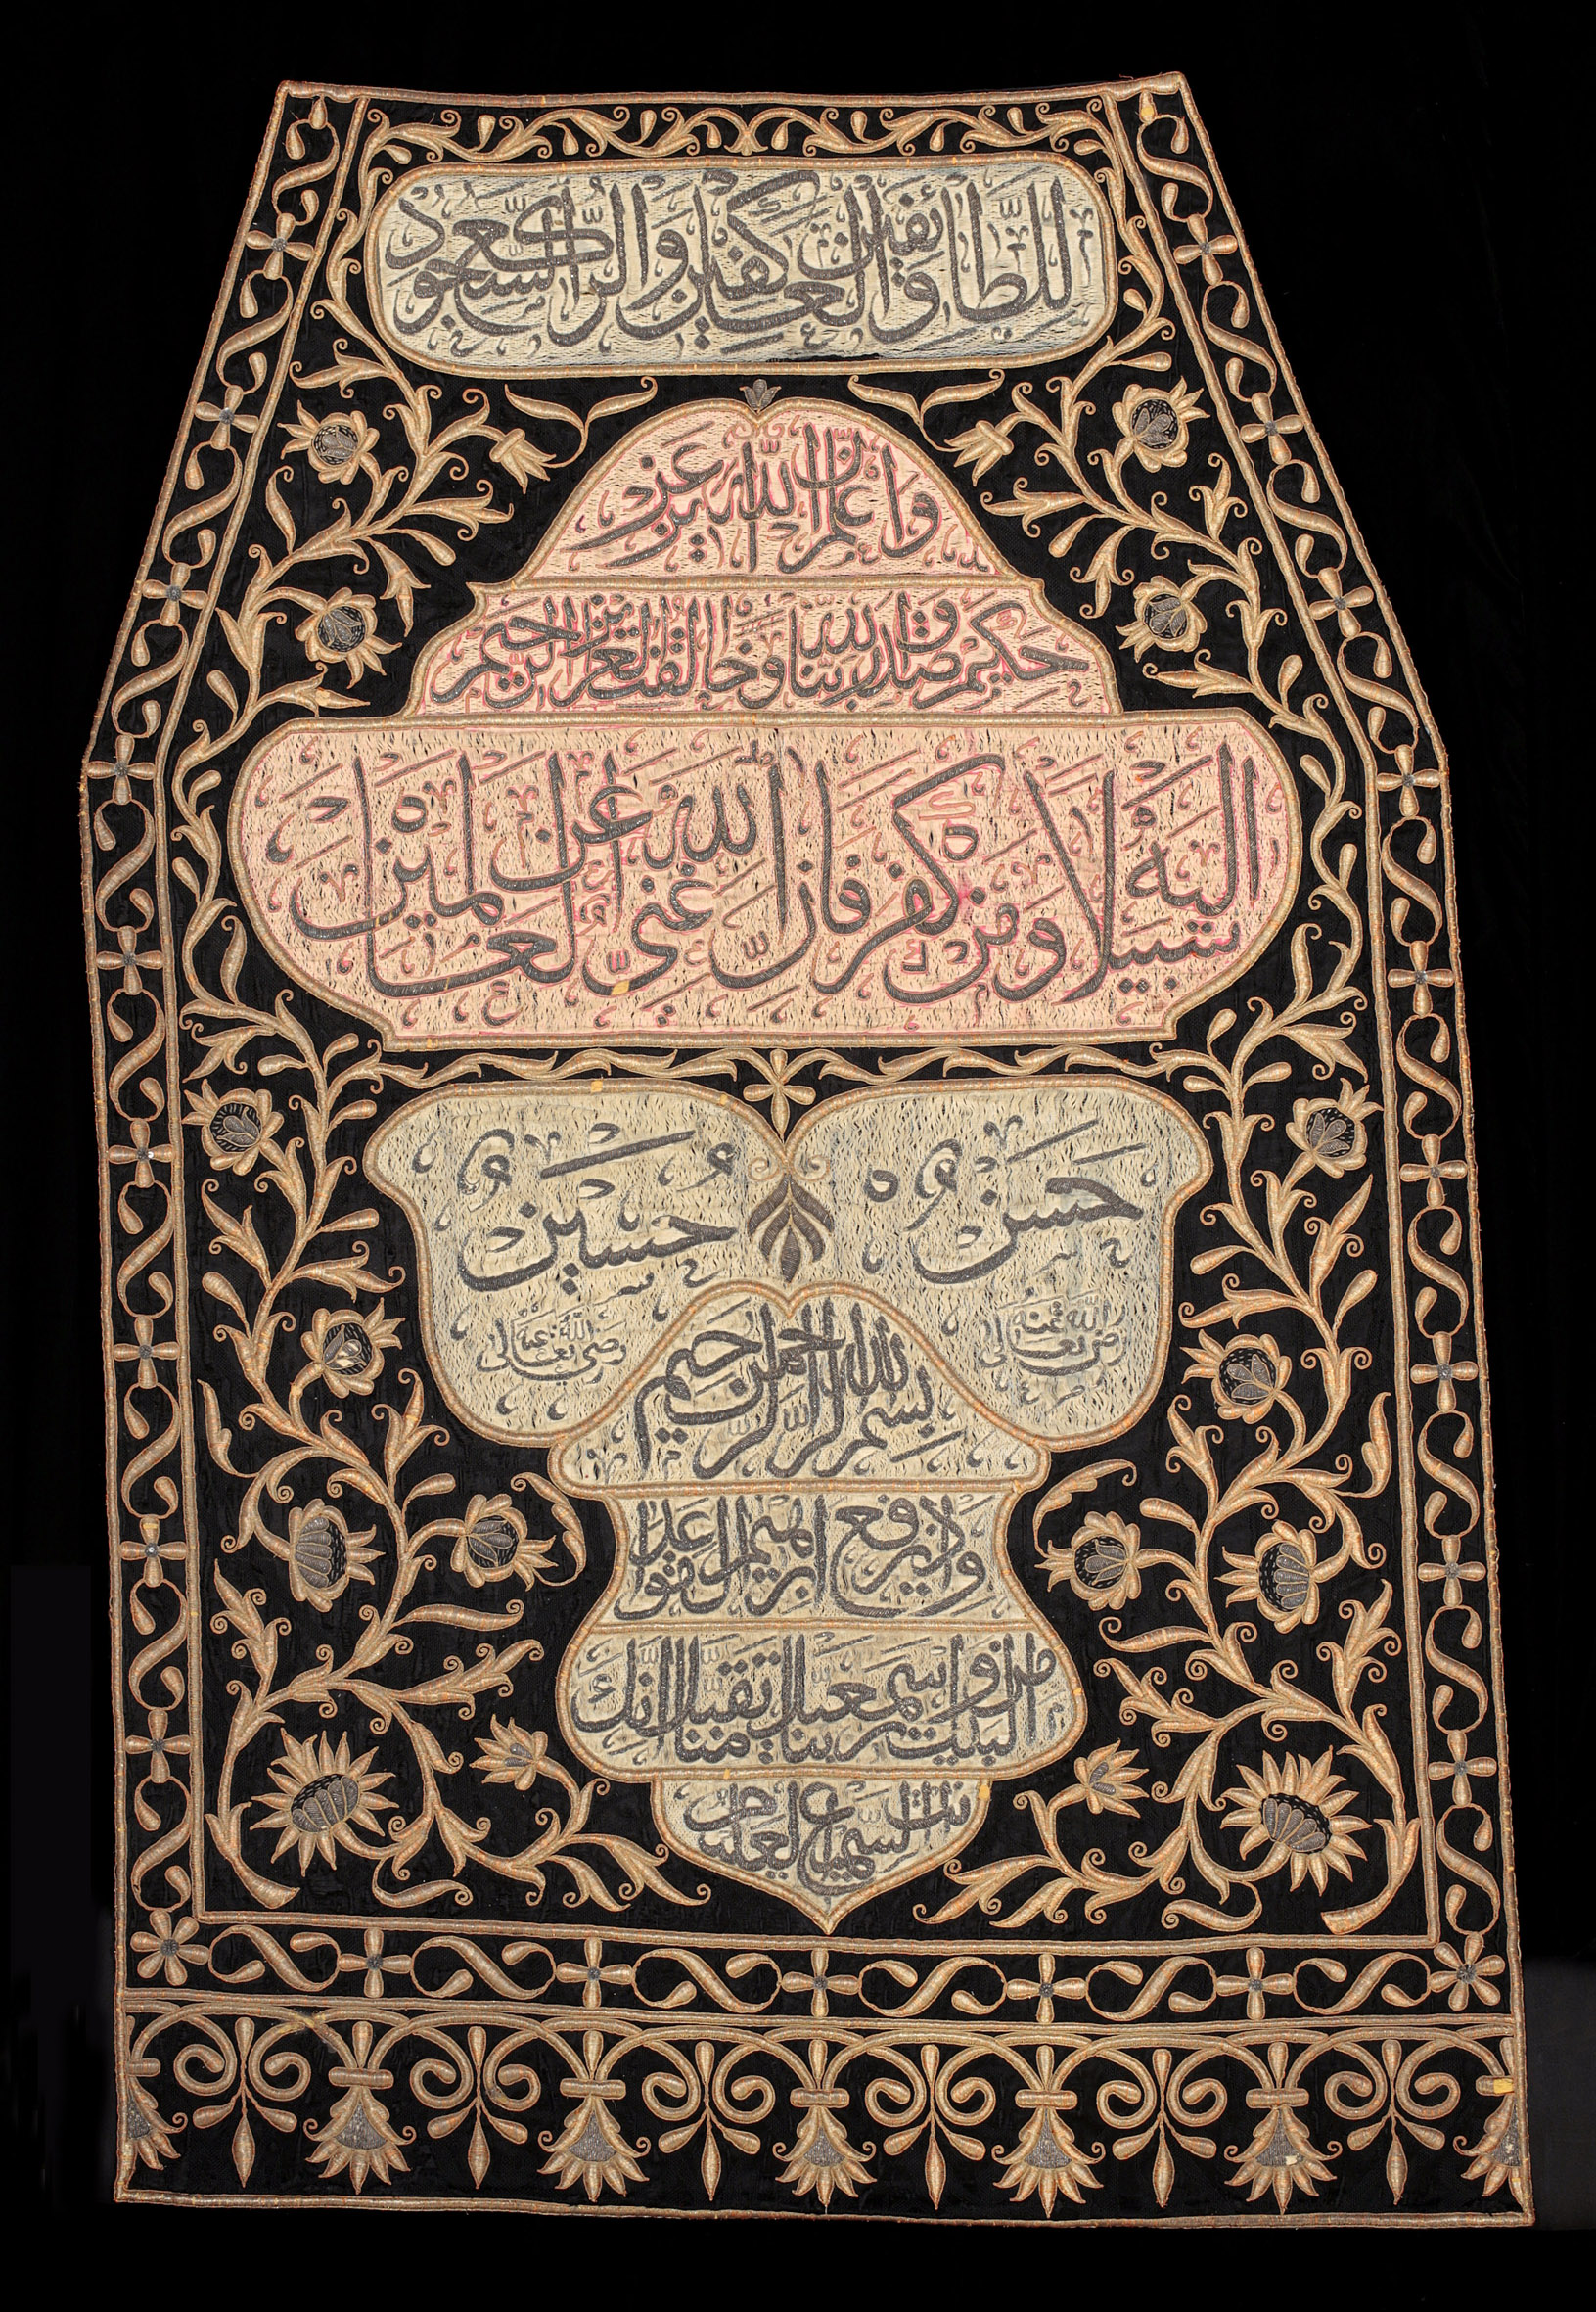 للطائفين والعكفين والركع السجود
واعلم ان الله عزيز
حكيم صدق الله ربنا وخالقنا العزيز الرحيم
اليه سبيلا ومن كفر فان الله غنى عن العالمين
حسن
رضى الله تعالى عنه
حسين
رضى الله تعالى عنه
بسم الله الرحمن الرحيم
واذ يرفع ابرهيم القواعد
من البيت واسمعيل ربنا تقبل منا انك
انت السميع العليم